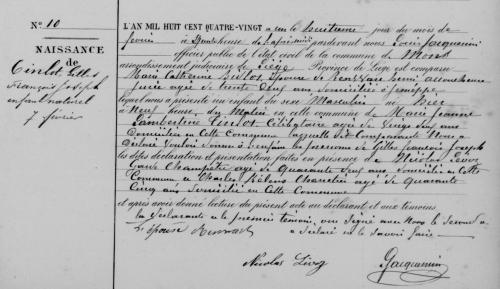 N° 10
NAISSANCE
de
Tinlot Gilles
François Joseph
enfant naturel
7 février
L'AN MIL HUIT CENT QUATRE-VINGT un le huitième jour du mois de
février à heure de pardevant nous Louis Jacquemin
officier public de l'état civil de la commune de
arrondissement judiciaire de Liège Province de Liège est comparu
Marie Catherine Epouse de Henri accoucheuse
Jurée agée de trente neuf ans domiciliée à Jemeppe
lequel nous a présenté un enfant du sexe Masculin né hier
à neuf heures du Matin en cette commune de Marie Jeanne
Lambertine Tinlot Célibataire agée de vingt neuf ans
Domiciliée en Cette Commune laquelle dite Comparante Nous a
déclaré Vouloir donner à l'enfant les prénoms de Gilles François Joseph
les dites déclaration et présentation faites en présence de Nicolas
Garde Champêtre agé de Quarante Neuf ans domicilié en Cette
Commune et Charles agé de Quarante
Cinq ans domicilié en Cette Commune
et après avoir donné lecture du présent acte au déclarant et aux témoins
la Déclarante et le premier témoin, ont Signé avec Nous le Second
a Déclaré ne le Savoir faire
L'épouse
Nicolas
Jacquemin